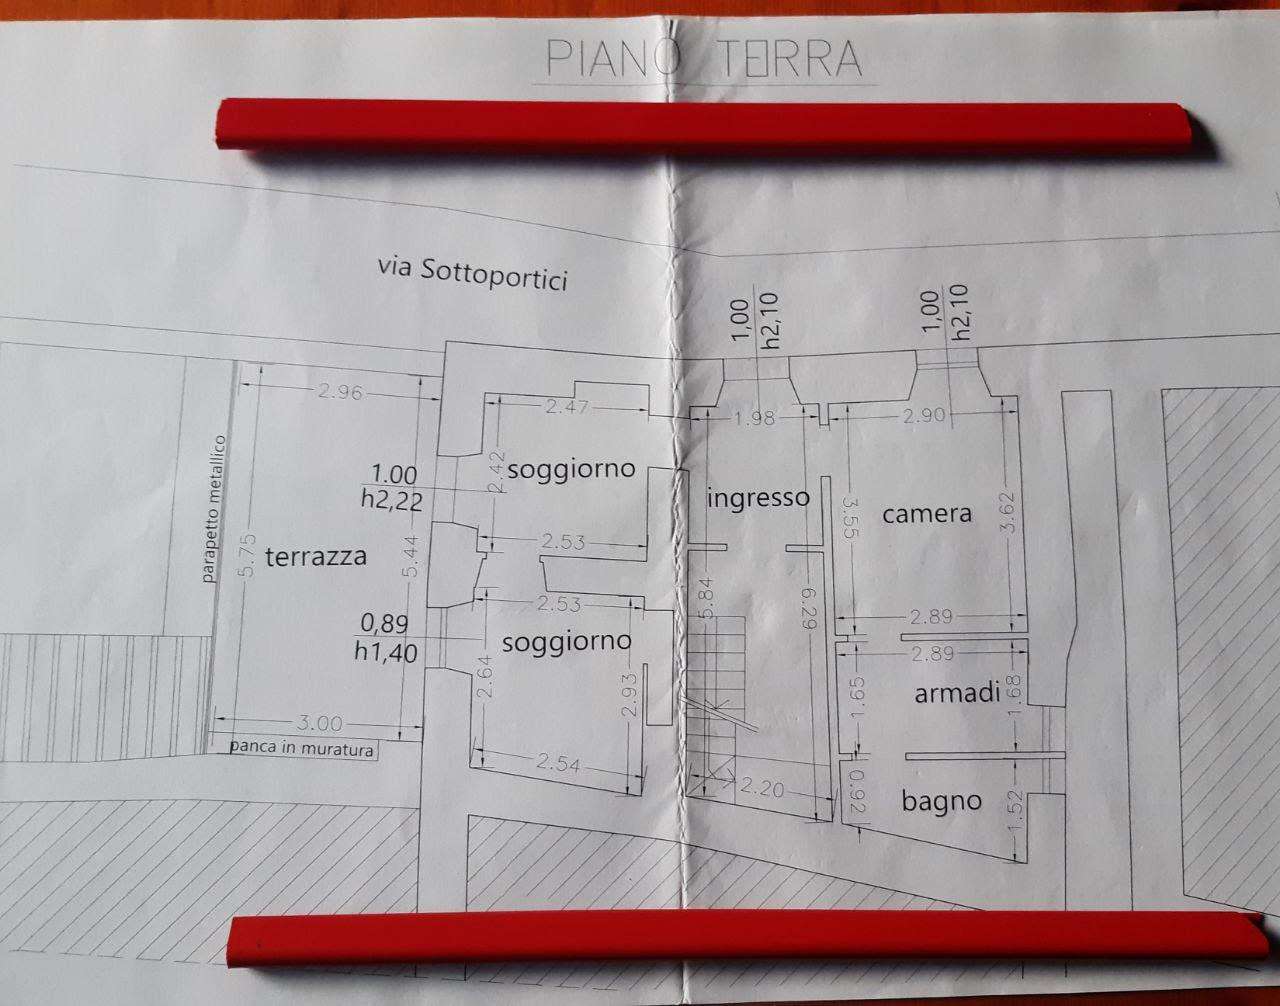 PIANO TERRA
via Sottoportici
1,00
h2,10
1,00
h2,10
2.96
2.47
1.98
2.90
1.00
h2,22
2.42
soggiorno
ingresso
camera
3.55
3.62
parapetto metallico
5.75
terrazza
5.44
2.53
2.53
5.84
6.29
0,89
h1,40
soggiorno
2.89
2.89
2.64
2.93
1.65
armadi
1.68
3.00
panca in muratura
2.54
2.20
0.92
bagno
1.52